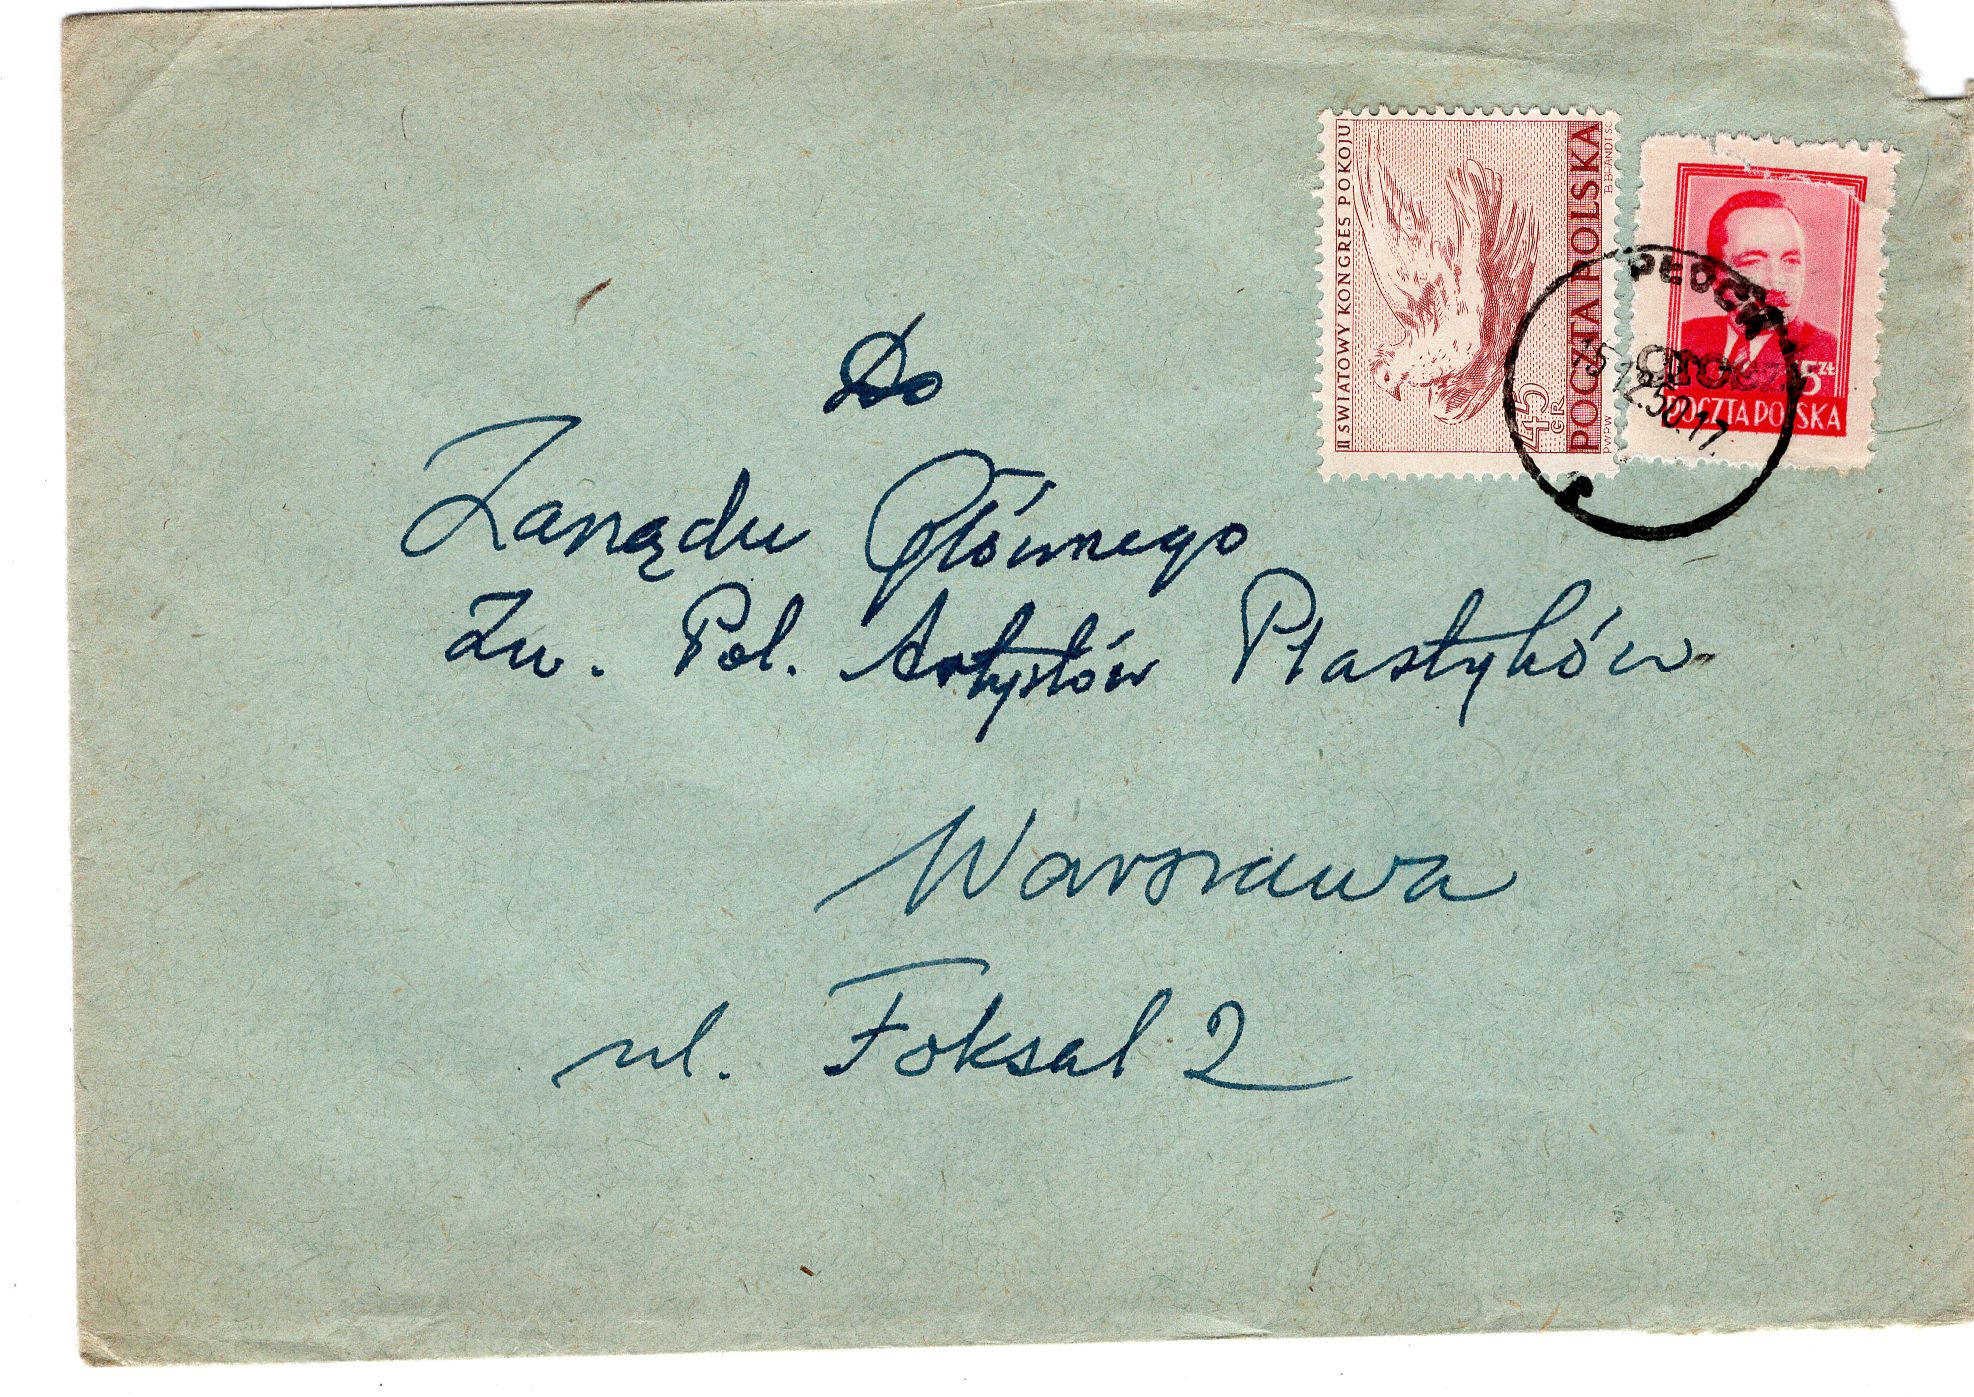 Do
Zarządu Głównego
Zw. Pol. Artystów Plastyków
Warszawa
ul. Foksal 2
II ŚWIATOWY KONGRES POKOJU
45
GR
POCZTA POLSKA
B. BRANDT SC.
PWPW
5 ZŁ
POCZTA POLSKA
PŁOCK
15 12.50.17.